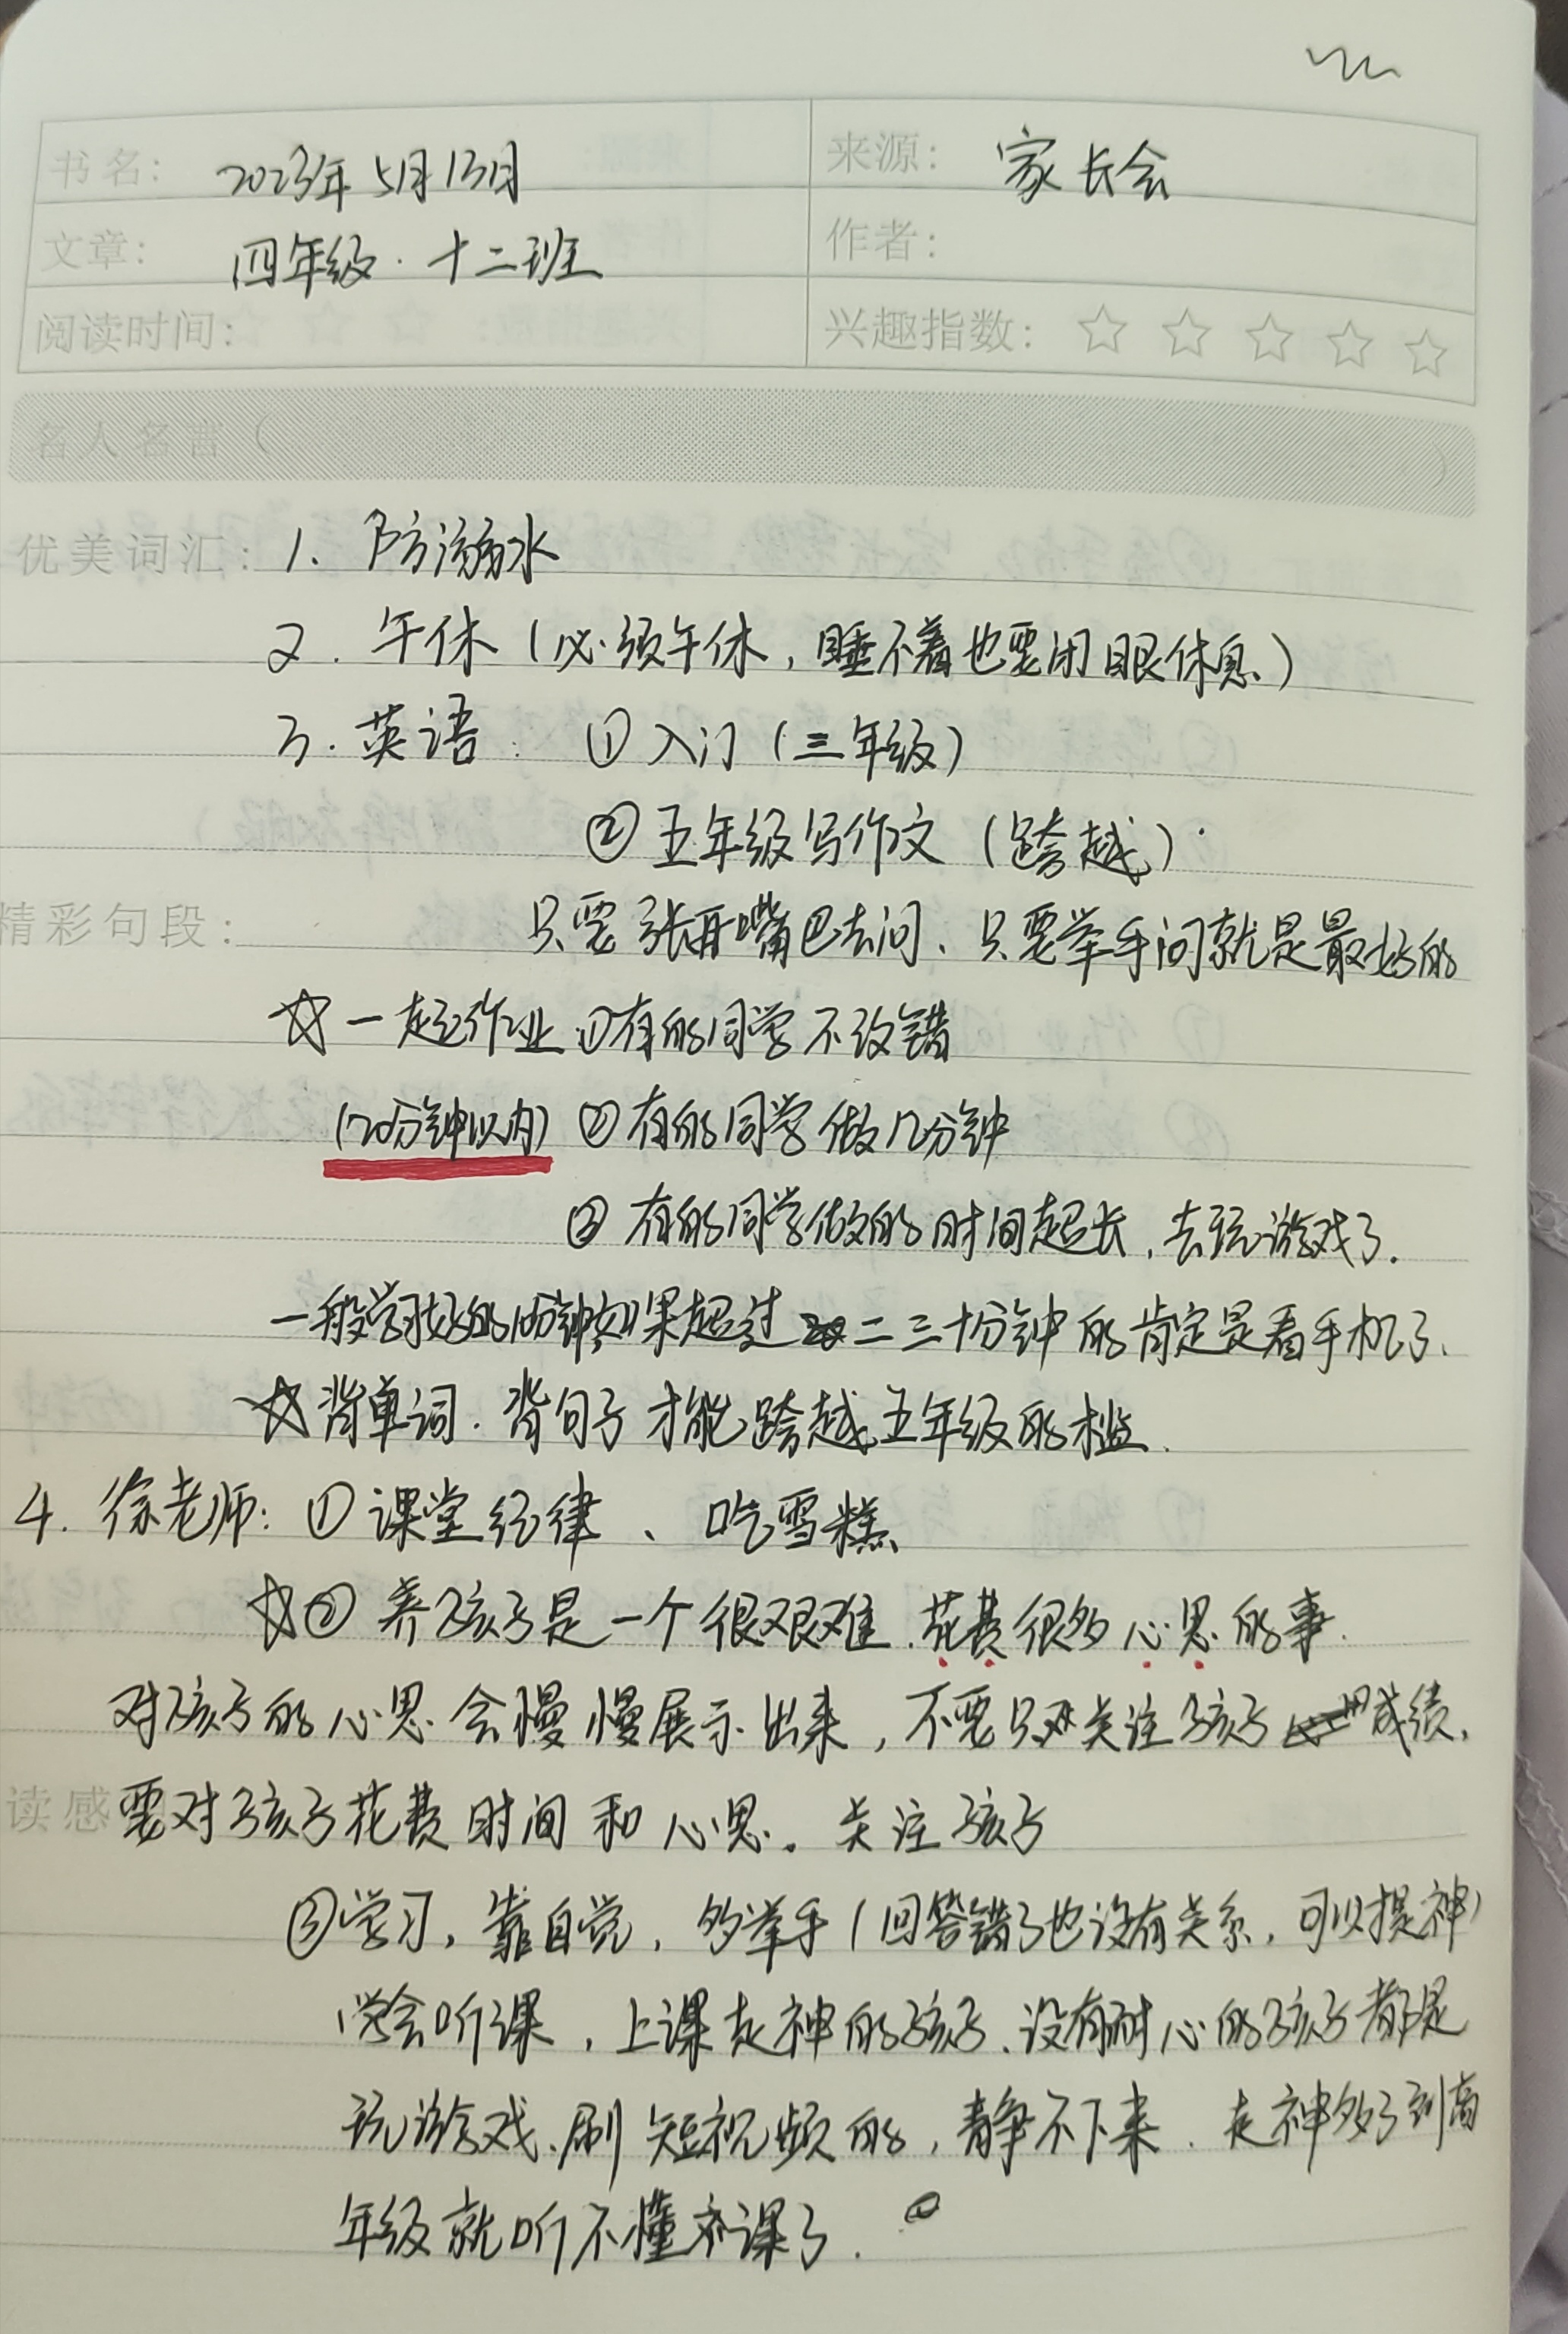 书名: 2023年5月13日 来源: 家长会
文章: 四年级·十二班 作者:
阅读时间: 兴趣指数: ☆ ☆ ☆ ☆ ☆
名人名言 ( )
优美词汇: 1. 防溺水
2. 午休 (必须午休, 睡不着也要闭眼休息)
3. 英语: ① 入门 (三年级)
② 五年级写作文 (跨越)
精彩句段: 只要张开嘴巴去问、只要举手问就是最好的
☆ 一起作业 ①有的同学不改错
(20分钟以内) ②有的同学做几分钟
③ 有的同学做的时间超长, 去玩游戏了.
一般学习好的10分钟,如果超过二三十分钟的肯定是看手机了.
☆ 背单词. 背句子才能跨越五年级的槛.
4. 徐老师: ① 课堂纪律 、 吃雪糕
☆② 养孩子是一个很艰难.花费很多心思的事.
对孩子的心思会慢慢展示出来, 不要只关注孩子成绩,
读感 要对孩子花费时间和心思。关注孩子
③学习, 靠自觉, 多举手 (回答错了也没有关系, 可以提神)
学会听课, 上课走神的孩子、没有耐心的孩子都是
玩游戏、刷短视频的, 静不下来. 走神多了到高
年级就听不懂课了.